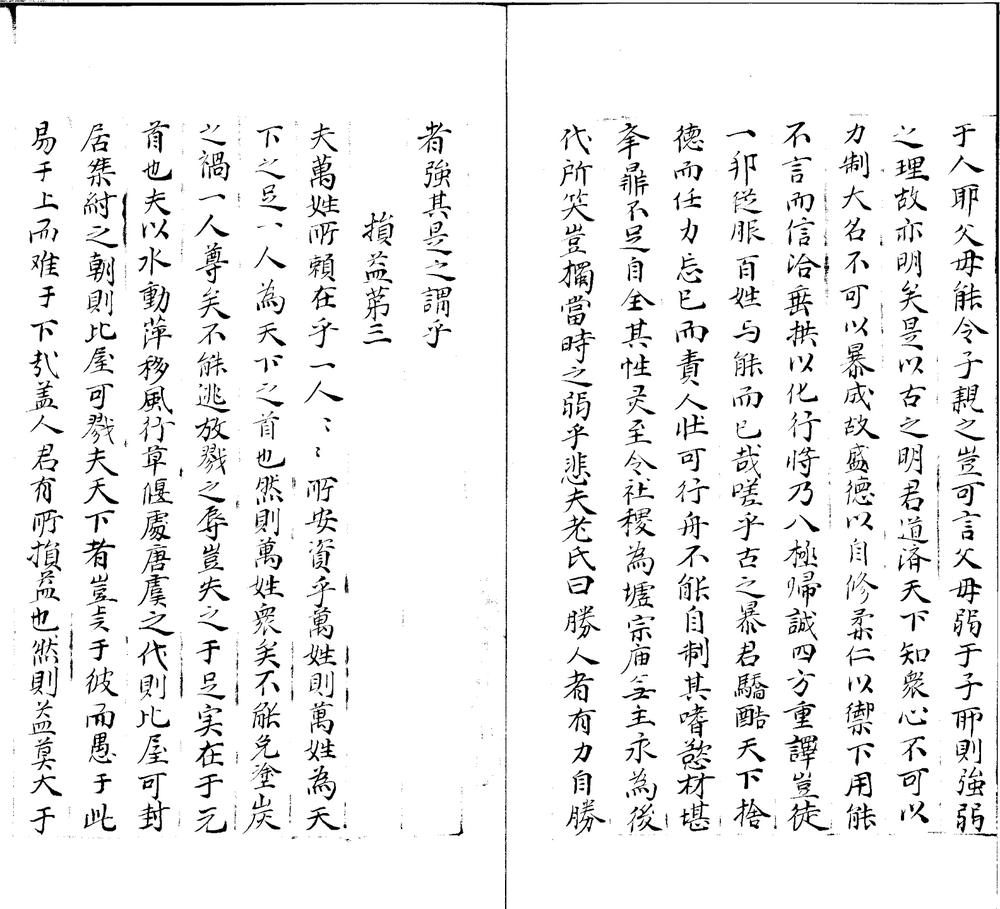 于人耶父毋能令子親之豈可言父毋弱于子耶則強弱
之理故亦明矣是以古之明君道済天下知衆心不可以
力制大名不可以暴成故盛德以自修柔仁以禦下用能
不言而信洽垂拱以化行将乃八極歸誠四方重譯豈徒
一邦從服百姓与能而已哉嗟乎古之暴君驕酷天下捨
德而任力忘已而責人壯可行舟不能自制其嗜慾材堪
舉鼎不足自全其性灵至令社稷為墟宗庙无主永為後
代所笑豈獨當時之弱乎悲夫老氏曰勝人者有力自勝
者強其是之謂乎
損益第三
夫萬姓所賴在乎一人〻〻所安資乎萬姓則萬姓為天
下之足一人為天下之首也然則萬姓衆矣不能免塗炭
之禍一人尊矣不能逃放戮之辱豈失之于足实在于元
首也夫以水動萍移風行草偃處唐虞之代則比屋可封
居桀紂之朝則比屋可戮夫天下者豈于彼而愚于此
易于上而难于下㢤盖人君有所損益也然則益莫大于